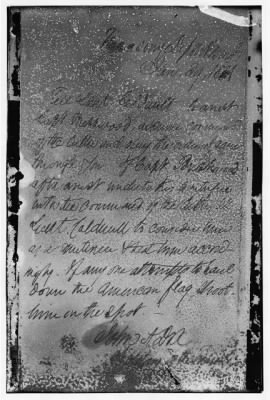 Treasury Department
Jan. 29, 1861
Tell Lieut. Caldwell to arrest
Capt. Breshwood, assume command
of the Cutter and obey the order I gave
through you. If Capt. Breshwood
after arrest undertakes to interfere
with the command of the Cutter, tell
Lieut. Caldwell to consider him
as a mutineer & treat him accord-
ingly. If any one attempts to haul
down the American flag, shoot
him on the spot
John A. Dix